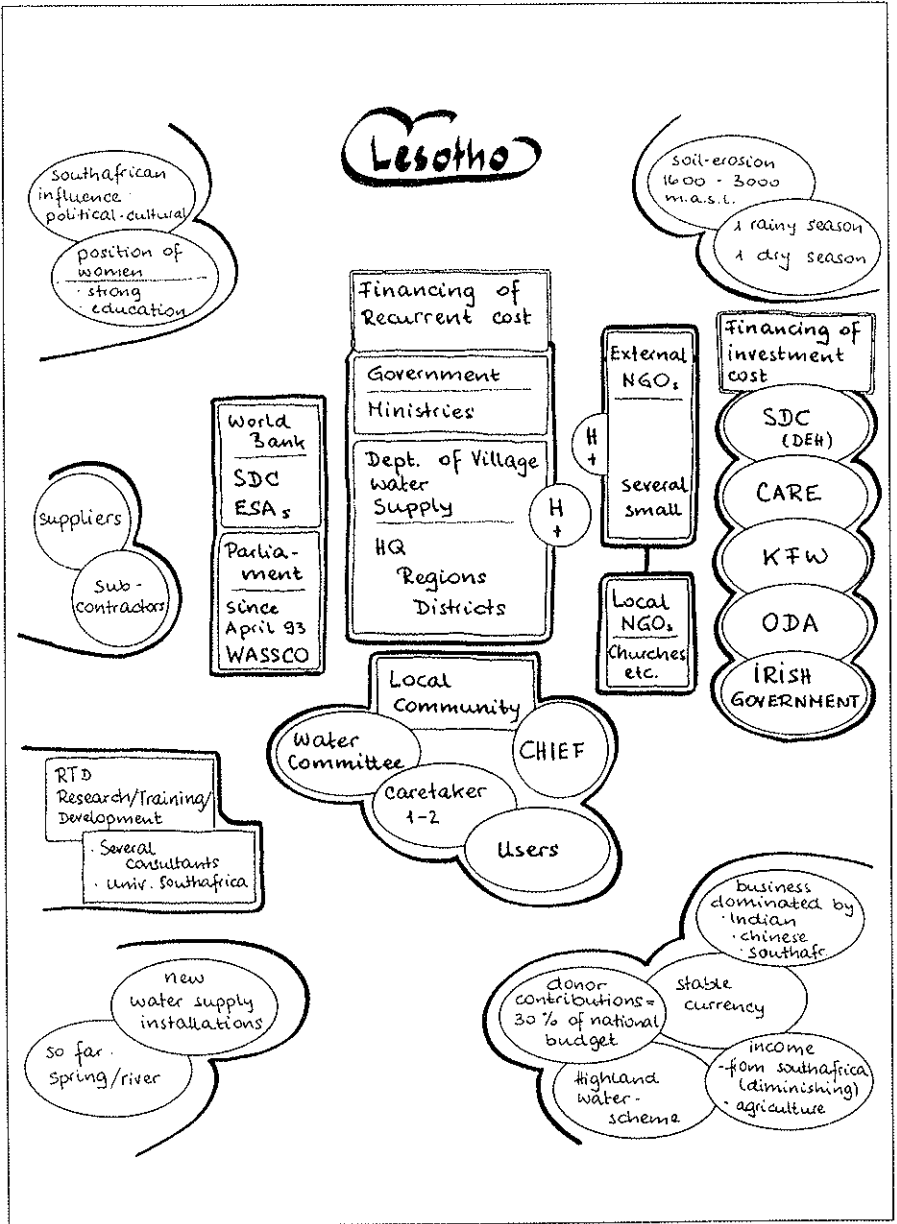 Lesotho
southafrican
influence·
political·cultural
position of
women
· strong
education
soil-erosion
1600 - 3000
m.a.s.l.
1 rainy season
1 dry season
Financing of
Recurrent cost
Government
Ministries
Dept. of Village
water
Supply
HQ
Regions
Districts
H
+
World
Bank
SDC
ESAs
Parlia-
ment
since
April 93
WASSCO
External
NGOs
several
small
H
+
Local
NGOs
Churches
etc.
Financing of
investment
cost
SDC
(DEH)
CARE
KFW
ODA
IRISH
GOVERNMENT
suppliers
sub-
contractors
Local
Community
Water
Committee
CHIEF
caretaker
1-2
Users
RTD
Research/Training/
Development
· Several
consultants
· Univ. Southafrica
new
water supply
installations
so far·
spring/river
business
dominated by
· Indian
· chinese
· southafr.
donor
contributions=
30% of national
budget
stable
currency
Highland
water-
scheme
income
-from southafrica
(diminishing)
· agriculture